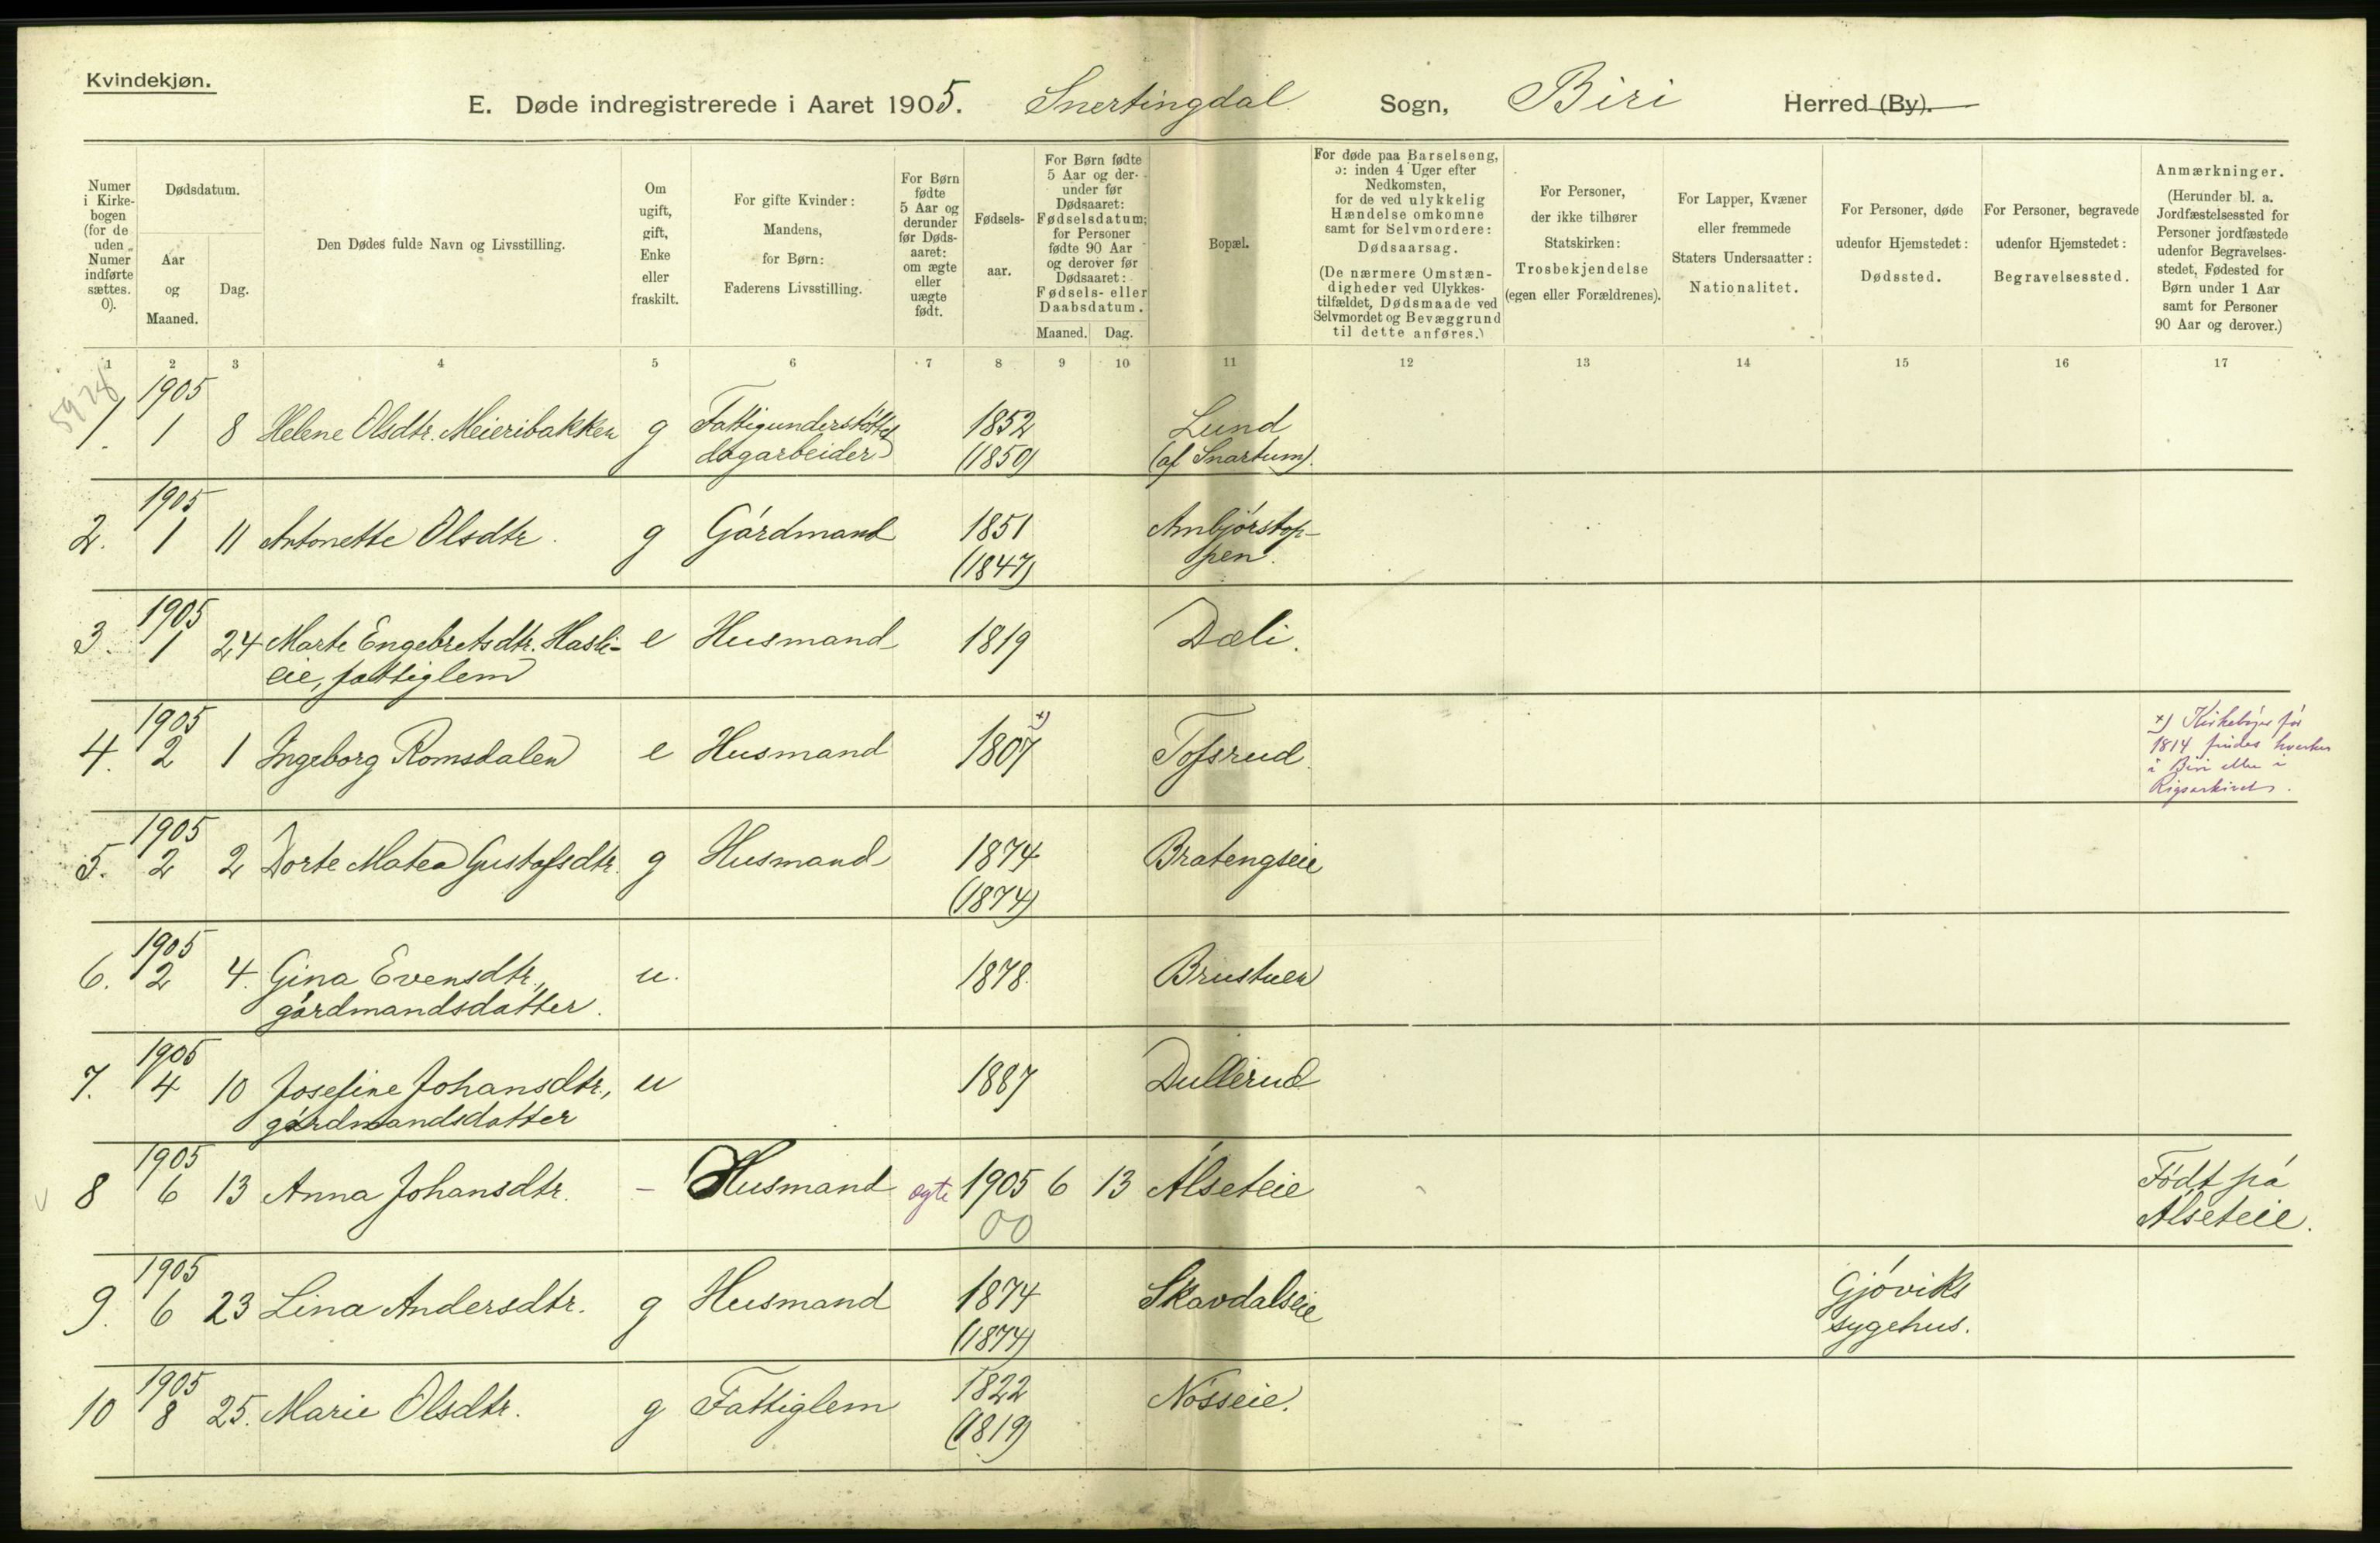 Kvindekjøn.
E. Døde indregistrerede i Aaret 1905. Snertingdal Sogn, Biri Herred (By).
Numer i Kirkebogen (for de uden Numer indførte sættes. 0).
Dødsdatum.
Aar og Maaned.
Dag.
Den Dødes fulde Navn og Livsstilling.
Om ugift, gift, Enke eller fraskilt.
For gifte Kvinder: Mandens, for Børn: Faderens Livsstilling.
For Børn fødte 5 Aar og derunder før Døds-aaret: om ægte eller uægte født.
Fødsels-aar.
For Børn fødte 5 Aar og der-under før Dødsaaret: Fødselsdatum; for Personer fødte 90 Aar og derover før Dødsaaret: Fødsels- eller Daabsdatum.
Maaned. Dag.
Bopæl.
For døde paa Barselseng, ɔ: inden 4 Uger efter Nedkomsten, for de ved ulykkelig Hændelse omkomne samt for Selvmordere: Dødsaarsag.
(De nærmere Omstæn-digheder ved Ulykkes-tilfældet, Dødsmaade ved Selvmordet og Bevæggrund til dette anføres.)
For Personer, der ikke tilhører Statskirken: Trosbekjendelse (egen eller Forældrenes).
For Lapper, Kvæner eller fremmede Staters Undersaatter: Nationalitet.
For Personer, døde udenfor Hjemstedet: Dødssted.
For Personer, begravede udenfor Hjemstedet: Begravelsessted.
Anmærkninger.
(Herunder bl. a. Jordfæstelsessted for Personer jordfæstede udenfor Begravelses-stedet, Fødested for Børn under 1 Aar samt for Personer 90 Aar og derover.)
1 2 3 4 5 6 7 8 9 10 11 12 13 14 15 16 17
1905
1. 1 8 Helene Olsdtr. Meieribakken g Fattigunderstöttet 1852 Lund
dagarbeider (1850) (af Snartum).
1905
2. 1 11 Antonette Olsdtr. g Gárdmand 1851 Ambjörstop-
(1847) pen.
1905
3. 1 24 Marte Engebretsdtr. Hasli- e Husmand 1819 Dæli.
eie, fattiglem
1905
4. 2 1 Ingeborg Romsdalen e Husmand 1807 +) Tofsrud. +) Kirkebøger før
1814 findes hverken
i Biri eller i
Rigsarkivet.
1905
5. 2 2 Dorte Matea Gustafsdtr. g Husmand 1874 Bratengseie
(1874)
1905
6. 2 4. Gina Evensdtr., u. 1878. Brustuen
gárdmandsdatter.
1905
7. 4 10 Josefine Johansdtr., u 1887 Dullerud
gárdmandsdatter
1905
8 6 13 Anna Johansdtr. - Husmand ægte 1905 6 13 Alseteie Födt pá
00 Alseteie.
1905
9. 6 23 Lina Andersdtr. g Husmand 1874 Skavdalseie Gjöviks
(1874) sygehus.
1905
10 8 25. Marie Olsdtr. g Fattiglem 1822 Nösseie.
(1819)